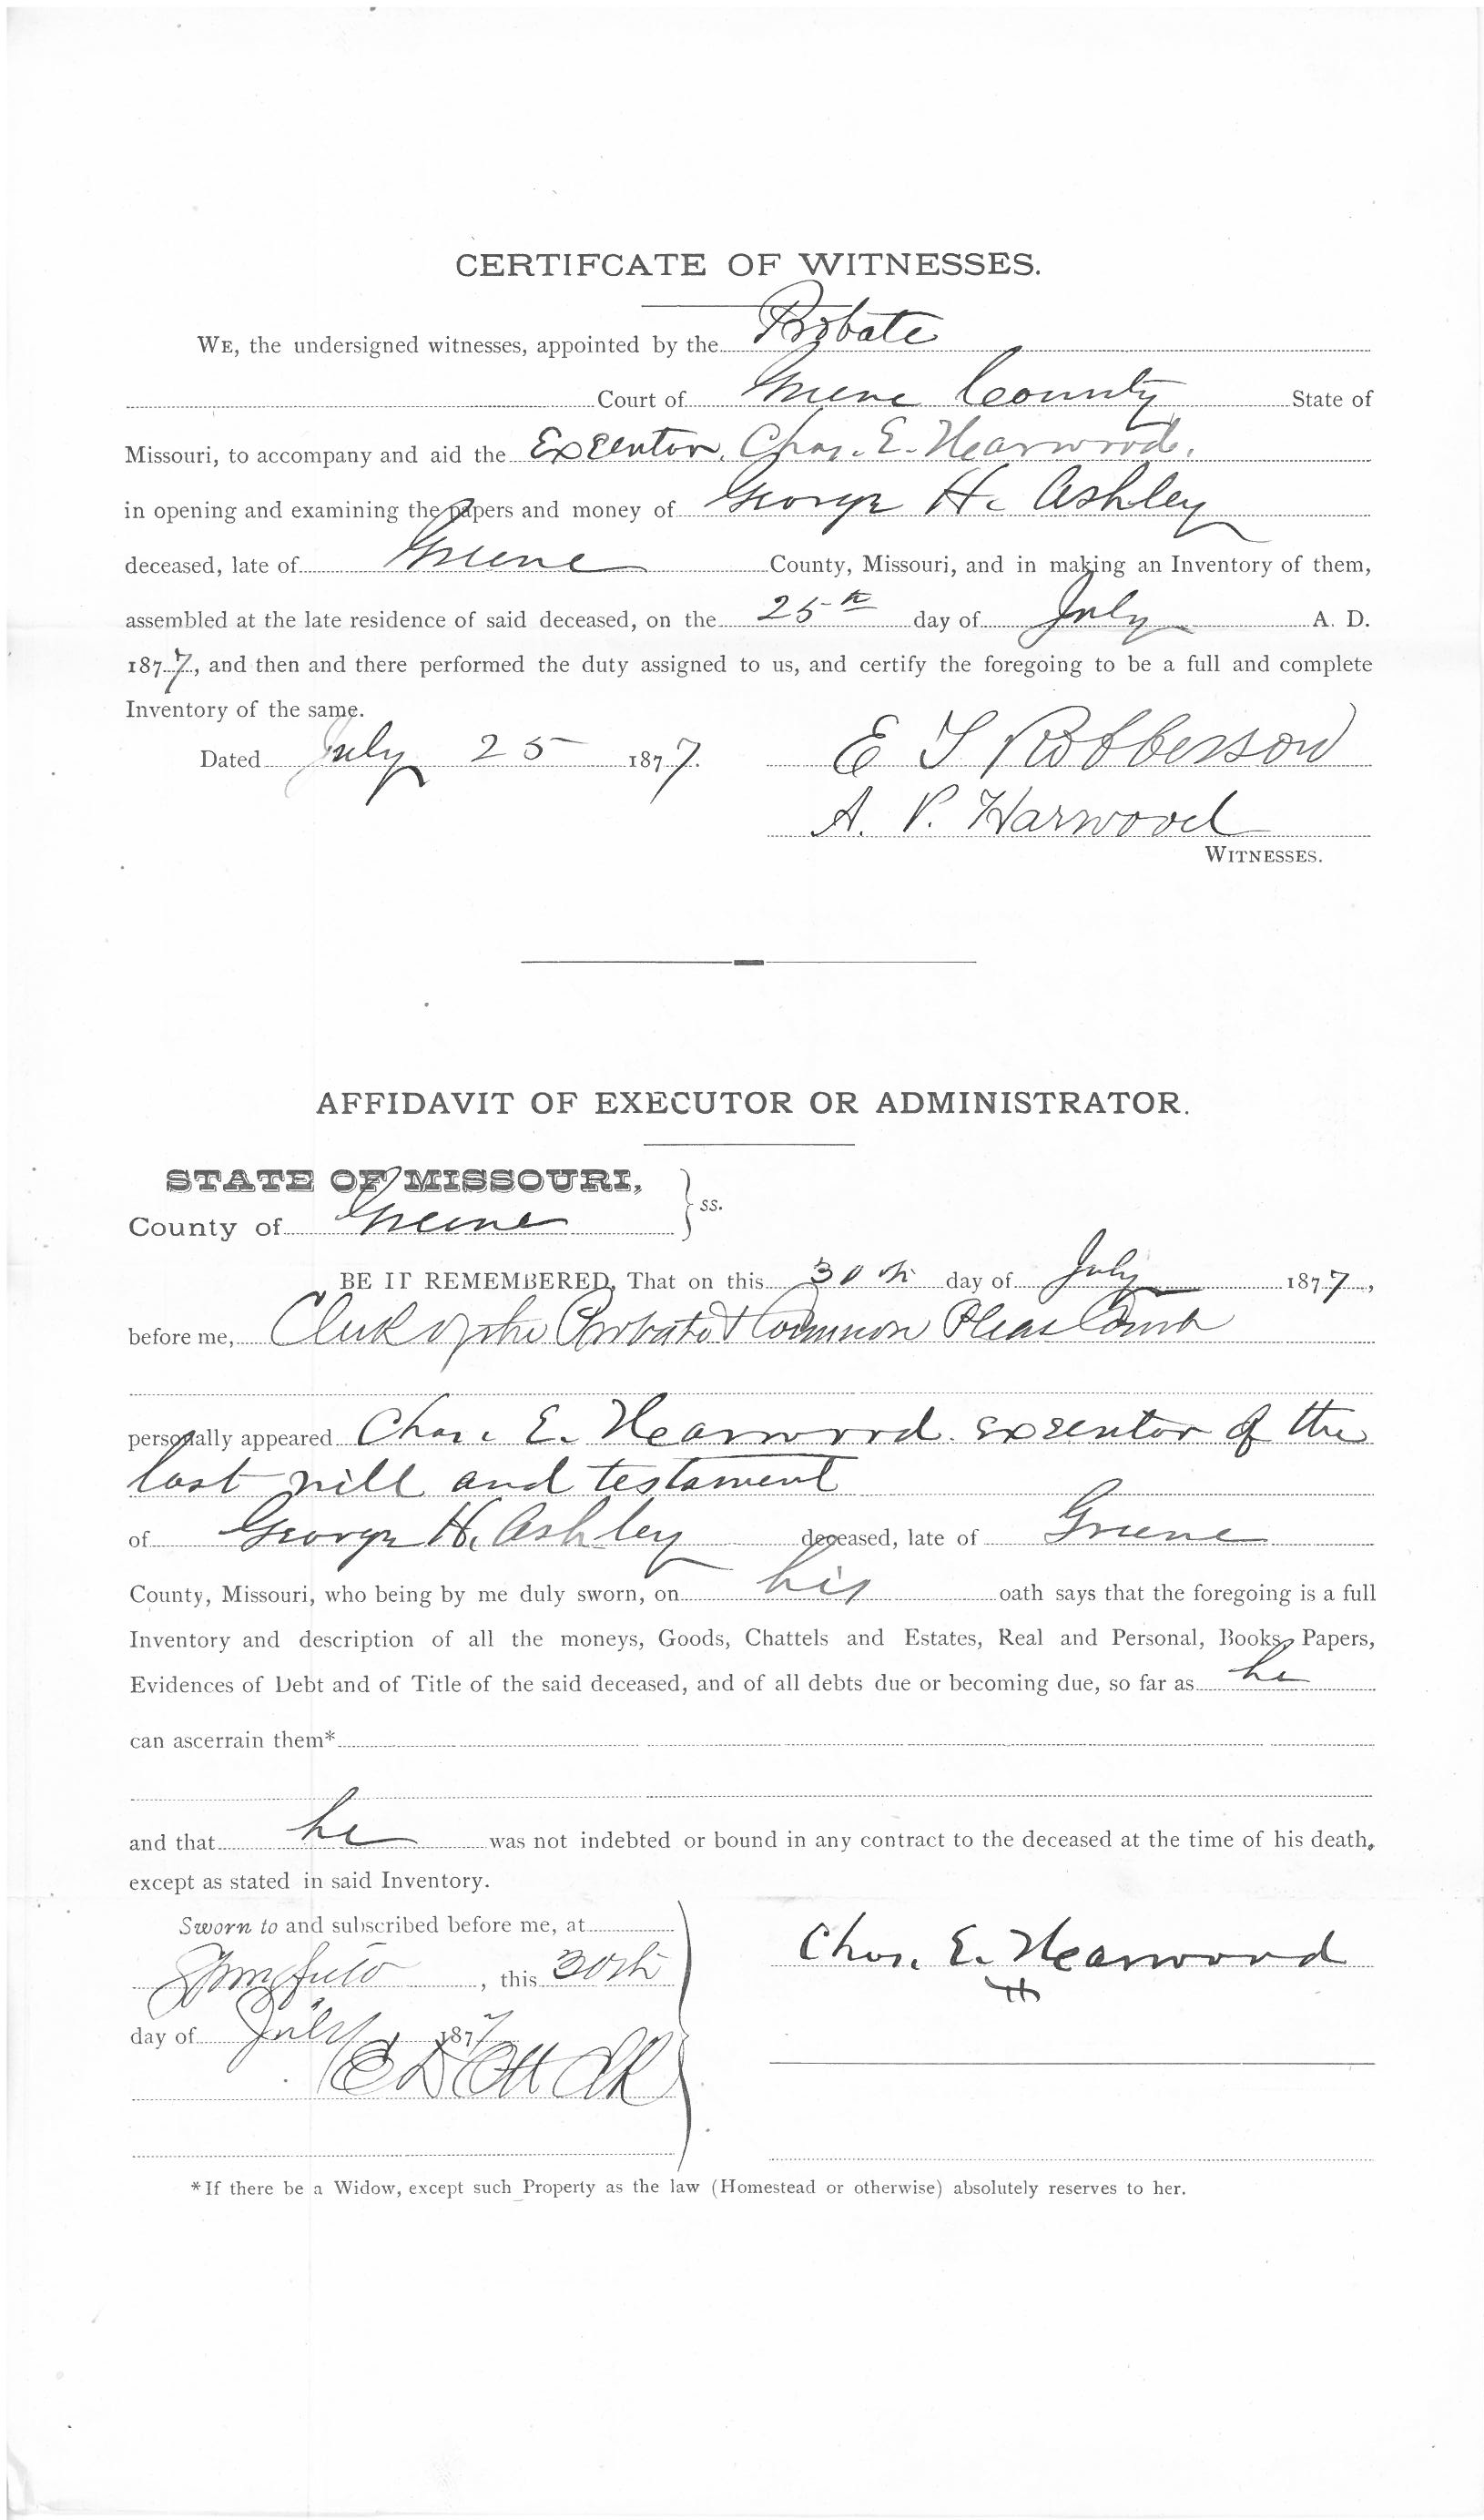 CERTIFCATE OF WITNESSES.
WE, the undersigned witnesses, appointed by the Probate
Court of Greene County State of
Missouri, to accompany and aid the Executor, Chas. E. Harwood,
in opening and examining the papers and money of George H. Ashley
deceased, late of Greene County, Missouri, and in making an Inventory of them,
assembled at the late residence of said deceased, on the 25th day of July A. D.
1877, and then and there performed the duty assigned to us, and certify the foregoing to be a full and complete
Inventory of the same.
Dated July 25 1877. E T Robberson
A. P. Harwood
WITNESSES.
AFFIDAVIT OF EXECUTOR OR ADMINISTRATOR.
STATE OF MISSOURI,
County of Greene ss.
BE IT REMEMBERED, That on this 30th day of July 1877,
before me, Clerk of the Probate & Common Pleas Court
personally appeared Chas. E. Harwood executor of the
last will and testament
of George H. Ashley deceased, late of Greene
County, Missouri, who being by me duly sworn, on his oath says that the foregoing is a full
Inventory and description of all the moneys, Goods, Chattels and Estates, Real and Personal, Books, Papers,
Evidences of Debt and of Title of the said deceased, and of all debts due or becoming due, so far as he
can ascerrain them*
and that he was not indebted or bound in any contract to the deceased at the time of his death,
except as stated in said Inventory.
Sworn to and subscribed before me, at
Springfield, this 30th
day of July 1877
Chas. E. Harwood
E D Ott Clk
*If there be a Widow, except such Property as the law (Homestead or otherwise) absolutely reserves to her.